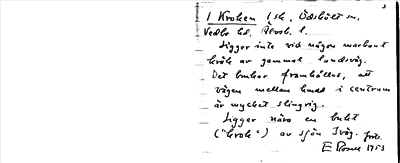 1 Kroken 1 sk, Ödshölt sn,
Vedbo hd, Älvsb. l.
Ligger inte vid någon markant
krök av gammal landsväg.
Det brukar framhållas, att
vägen mellan Hund i centrum
är mycket slingrig.
Ligger nära en bukt
("krok") av sjön Iväg.
E 1953